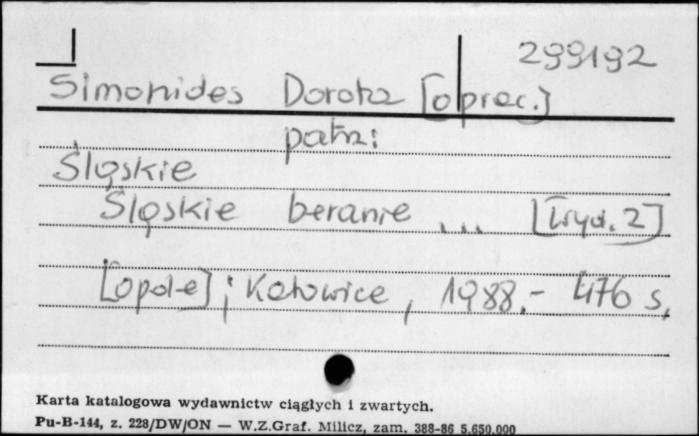 299192
Simonides Dorota [oprac.]
patrz:
Śląskie
Śląskie beranie ... [Wyd. 2]
[Opole] ; Katowice, 1988.- 476 s.
Karta katalogowa wydawnictw ciągłych i zwartych.
Pu-B-144, z. 228/DW/ON — W.Z.Graf. Milicz, zam. 388-86 5.650.000